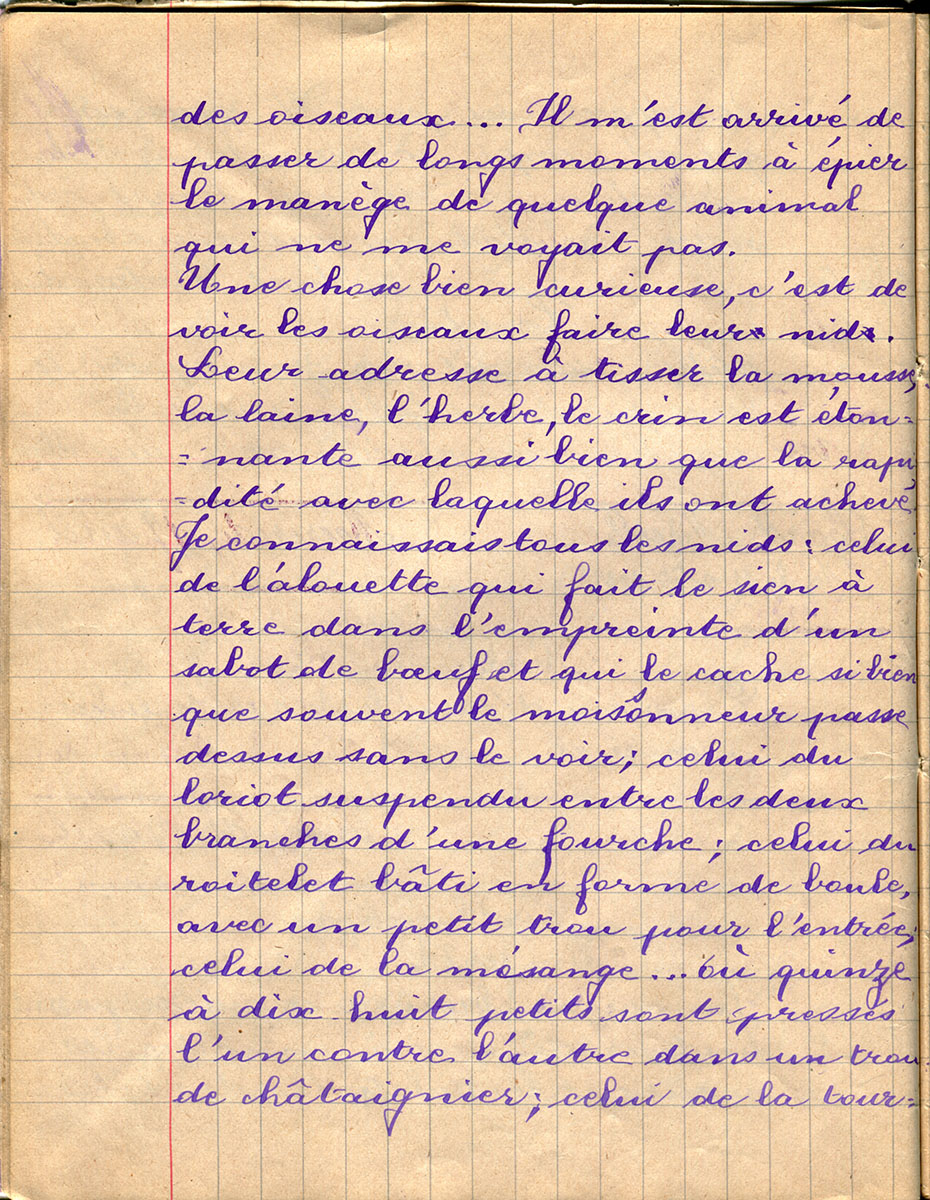 des oiseaux... Il m'est arrivé de
passer de longs moments à épier
le manège de quelque animal
qui ne me voyait pas.
Une chose bien curieuse, c'est de
voir les oiseaux faire leur nid.
Leur adresse à tisser la mousse,
la laine, l'herbe, le crin est éton=
=nante aussi bien que la rapi
=dité avec laquelle ils ont achevé.
Je connaissais tous les nids : celui
de l'alouette qui fait le sien à
terre dans l'empreinte d'un
sabot de bœuf et qui le cache si bien
que souvent le moissonneur passe
dessus sans le voir ; celui du
loriot suspendu entre les deux
branches d'une fourche ; celui du
roitelet bâti en forme de boule,
avec un petit trou pour l'entrée ;
celui de la mésange... où quinze
à dix-huit petits sont pressés
l'un contre l'autre dans un trou
de châtaignier ; celui de la tour=